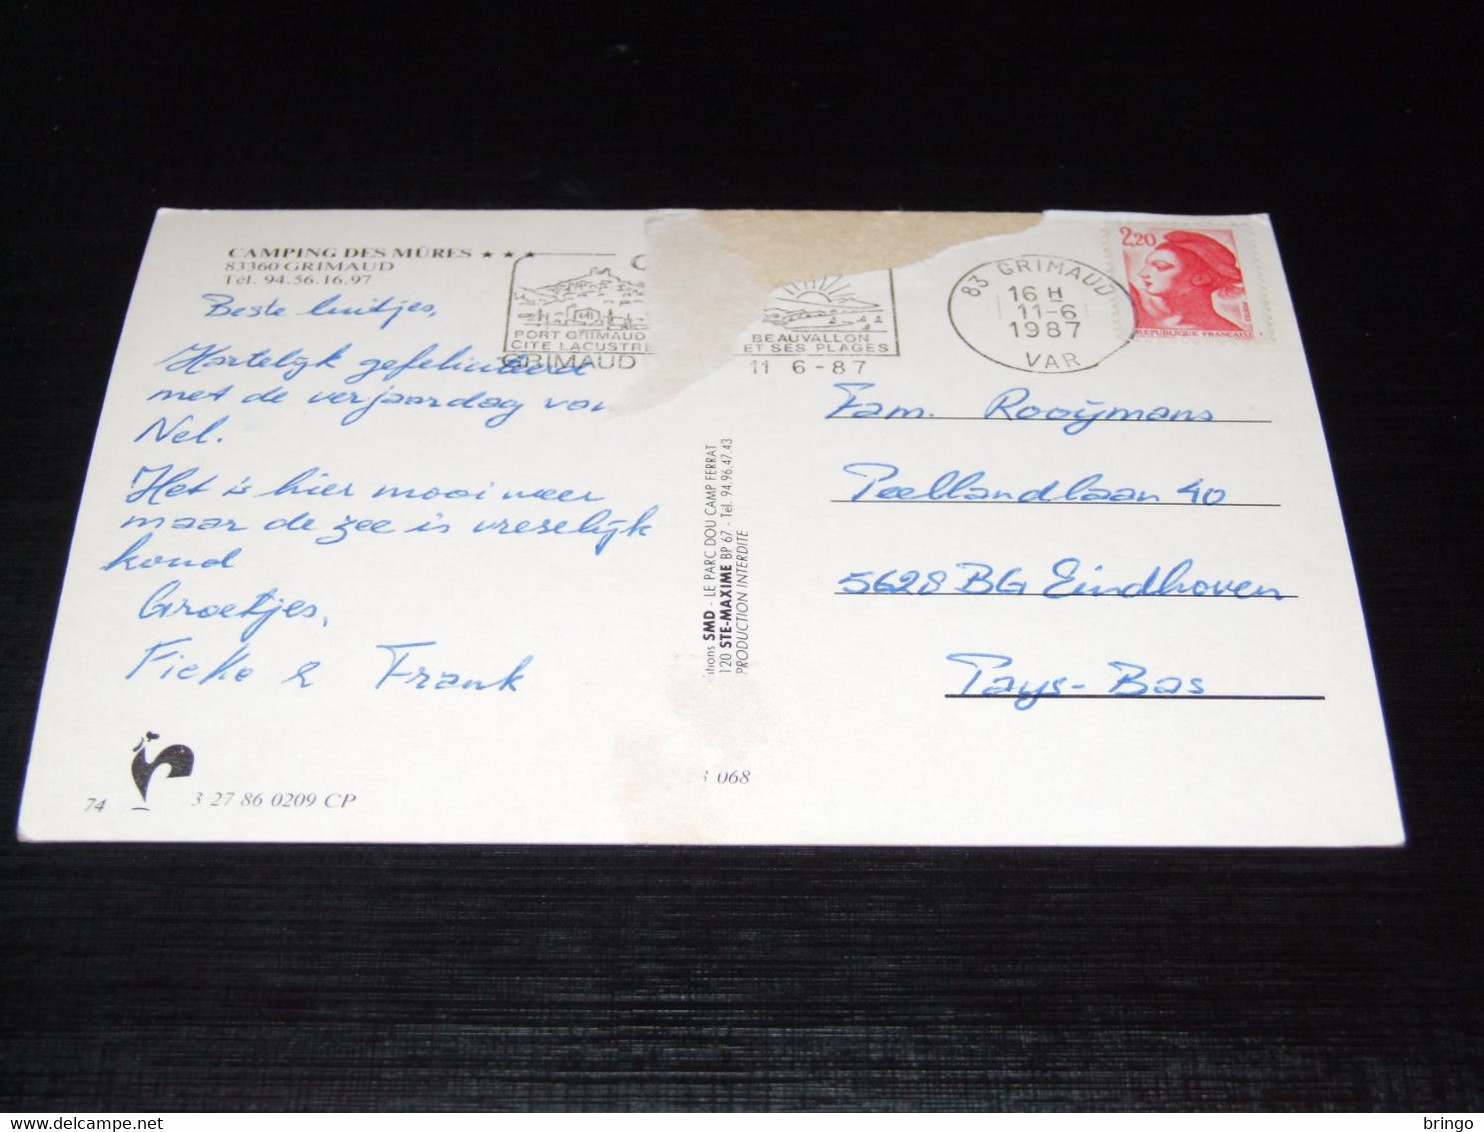 CAMPING DES MÛRES ★ ★ ★
83360 GRIMAUD
Tél. 94.56.16.97
Beste luitjes,
Hartelijk gefeliciteerd
met de verjaardag van
Nel.
Het is hier mooi weer
maar de zee is vreselijk
koud
Groetjes,
Fieke & Frank
74
3 27 86 0209 CP
PORT GRIMAUD
CITE LACUSTRE
GRIMAUD
BEAUVALLON
ET SES PLAGES
11 6-87
83 GRIMAUD
16 H
11-6
1987
VAR
2,20
REPUBLIQUE FRANÇAISE
itions SMD - LE PARC DOU CAMP FERRAT
120 STE-MAXIME BP 67 - Tel. 94.96.47.43
PRODUCTION INTERDITE
068
Fam. Rooijmans
Peellandlaan 40
5628 BG Eindhoven
Pays-Bas
bringo
delcampe.net